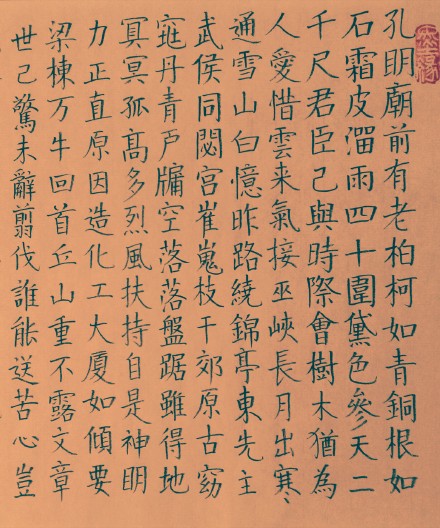 孔眀廟前有老柏柯如青銅根如
石霜皮溜雨四十圍黛色參天二
千尺君臣已與時際會樹木猶為
人愛惜雲来氣接巫峽長月出寒
通雪山白憶昨路繞錦亭東先主
武侯同閟宮崔嵬枝干郊原古窈
窕丹青戶牖空落落盤踞雖得地
冥冥孤髙多烈風扶持自是神眀
力正直原因造化工大廈如傾要
梁棟万牛回首丘山重不露文章
世已驚未辭翦伐誰能送苦心豈